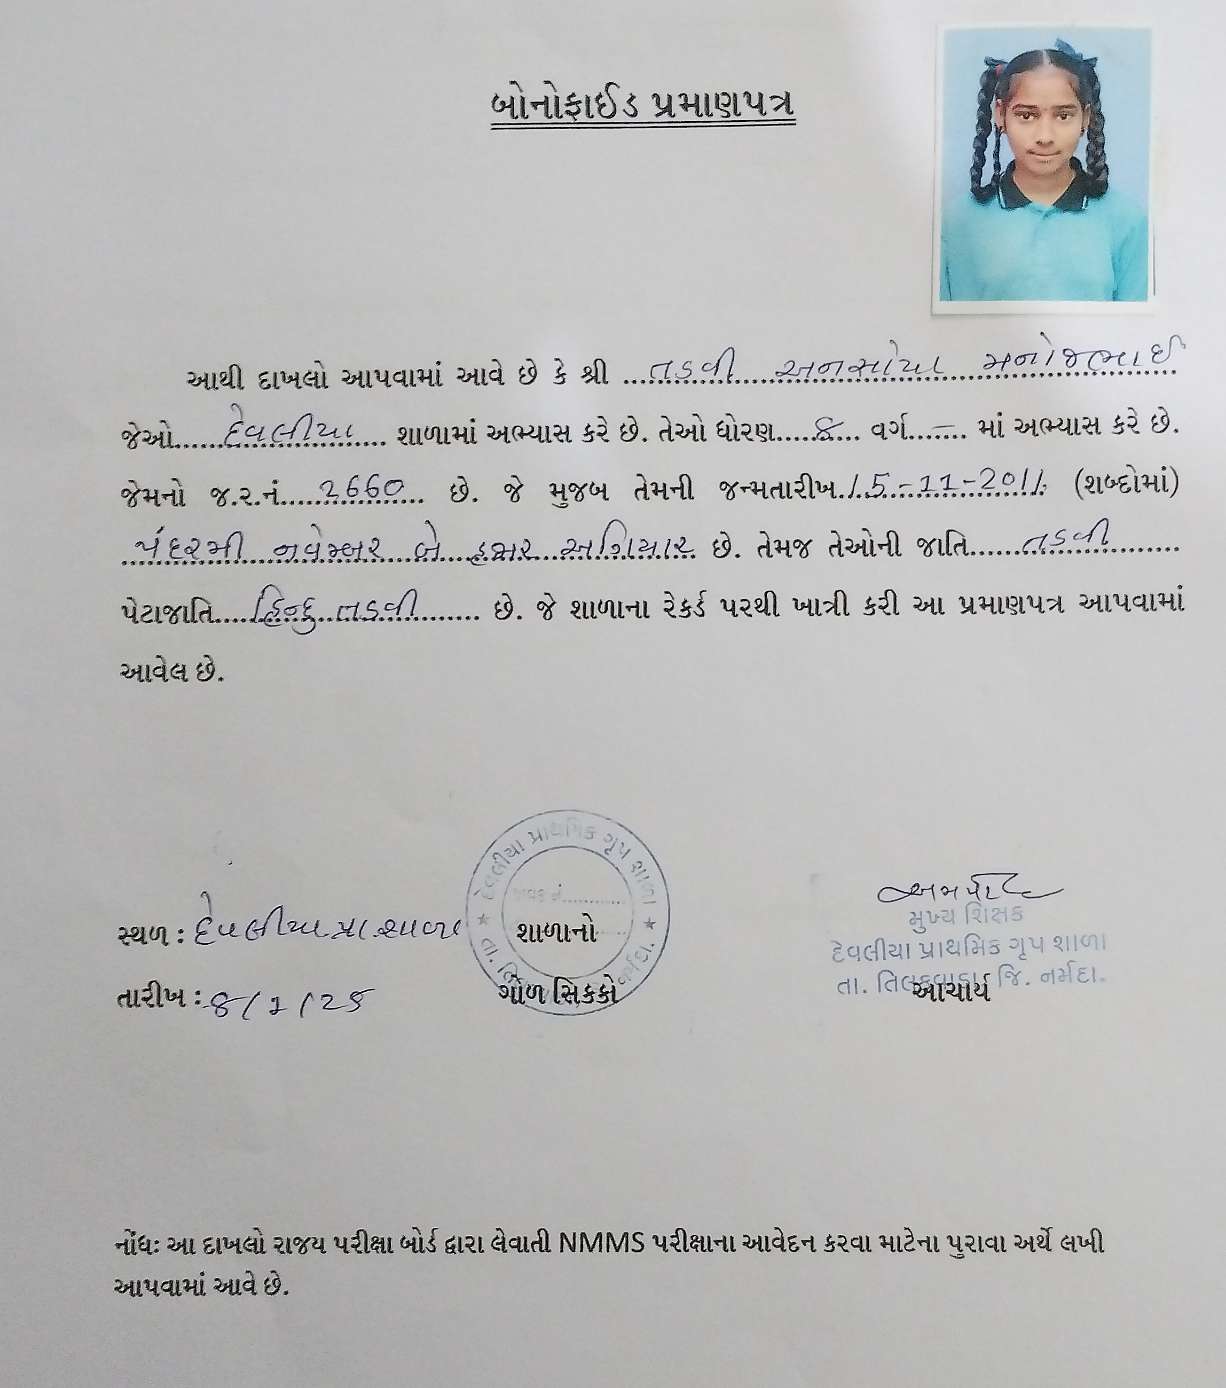 બોનોફાઈડ પ્રમાણપત્ર
આથી દાખલો આપવામાં આવે છે કે શ્રી તડવી અનસોયા મનોજભાઈ
જેઓ દેવલીયા શાળામાં અભ્યાસ કરે છે. તેઓ ધોરણ 8 વર્ગ – માં અભ્યાસ કરે છે.
જેમનો જ.ર.નં. 2660 છે. જે મુજબ તેમની જન્મતારીખ 15-11-2011 (શબ્દોમાં)
પંદરમી નવેમ્બર બે હજાર અગિયાર છે. તેમજ તેઓની જાતિ તડવી
પેટાજાતિ હિન્દુ તડવી છે. જે શાળાના રેકર્ડ પરથી ખાત્રી કરી આ પ્રમાણપત્ર આપવામાં
આવેલ છે.
દેવલીયા પ્રાથમિક ગૃપ શાળા
સ્થળ : દેવલીયા પ્રા શાળા
તારીખ : 8/1/25
શાળાનો
ગોળ સિકકો
મુખ્ય શિક્ષક
દેવલીયા પ્રાથમિક ગૃપ શાળા
તા. તિલકવાડા જિ. નર્મદા.
આચાર્ય
નોંધઃ આ દાખલો રાજય પરીક્ષા બોર્ડ દ્વારા લેવાતી NMMS પરીક્ષાના આવેદન કરવા માટેના પુરાવા અર્થે લખી
આપવામાં આવે છે.